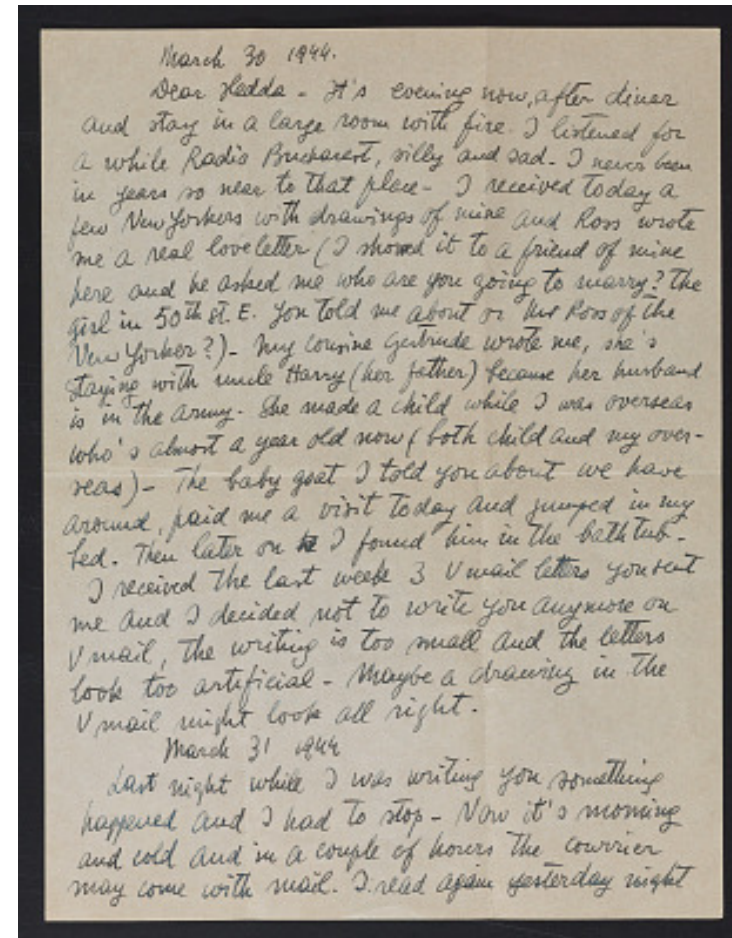 March 30 1944.
Dear Hedda - It's evening now, after diner
and stay in a large room with fire. I listened for
a while Radio Bucharest, silly and sad - I never been
in years so near to that place - I received today a
few New Yorkers with drawings of mine and Ross wrote
me a real loveletter (I showed it to a friend of mine
here and he asked me who are you going to marry? The
girl in 50th St. E. you told me about or Mr Ross of the
New Yorker?) - My cousine Gertrude wrote me, she's
staying with uncle Harry (her father) because her husband
is in the army. She made a child while I was overseas
who's almost a year old now (both child and my over-
seas) - The baby goat I told you about we have
around, paid me a visit today and jumped in my
bed. Then later on I found him in the bath tub -
I received the last week 3 V mail letters you sent
me and I decided not to write you anymore on
V mail, the writing is too small and the letters
look too artificial - Maybe a drawing in the
V mail might look all right.
March 31 1944
Last night while I was writing you something
happened and I had to stop - Now it's morning
and cold and in a couple of hours the courrier
may come with mail. I read again yesterday night